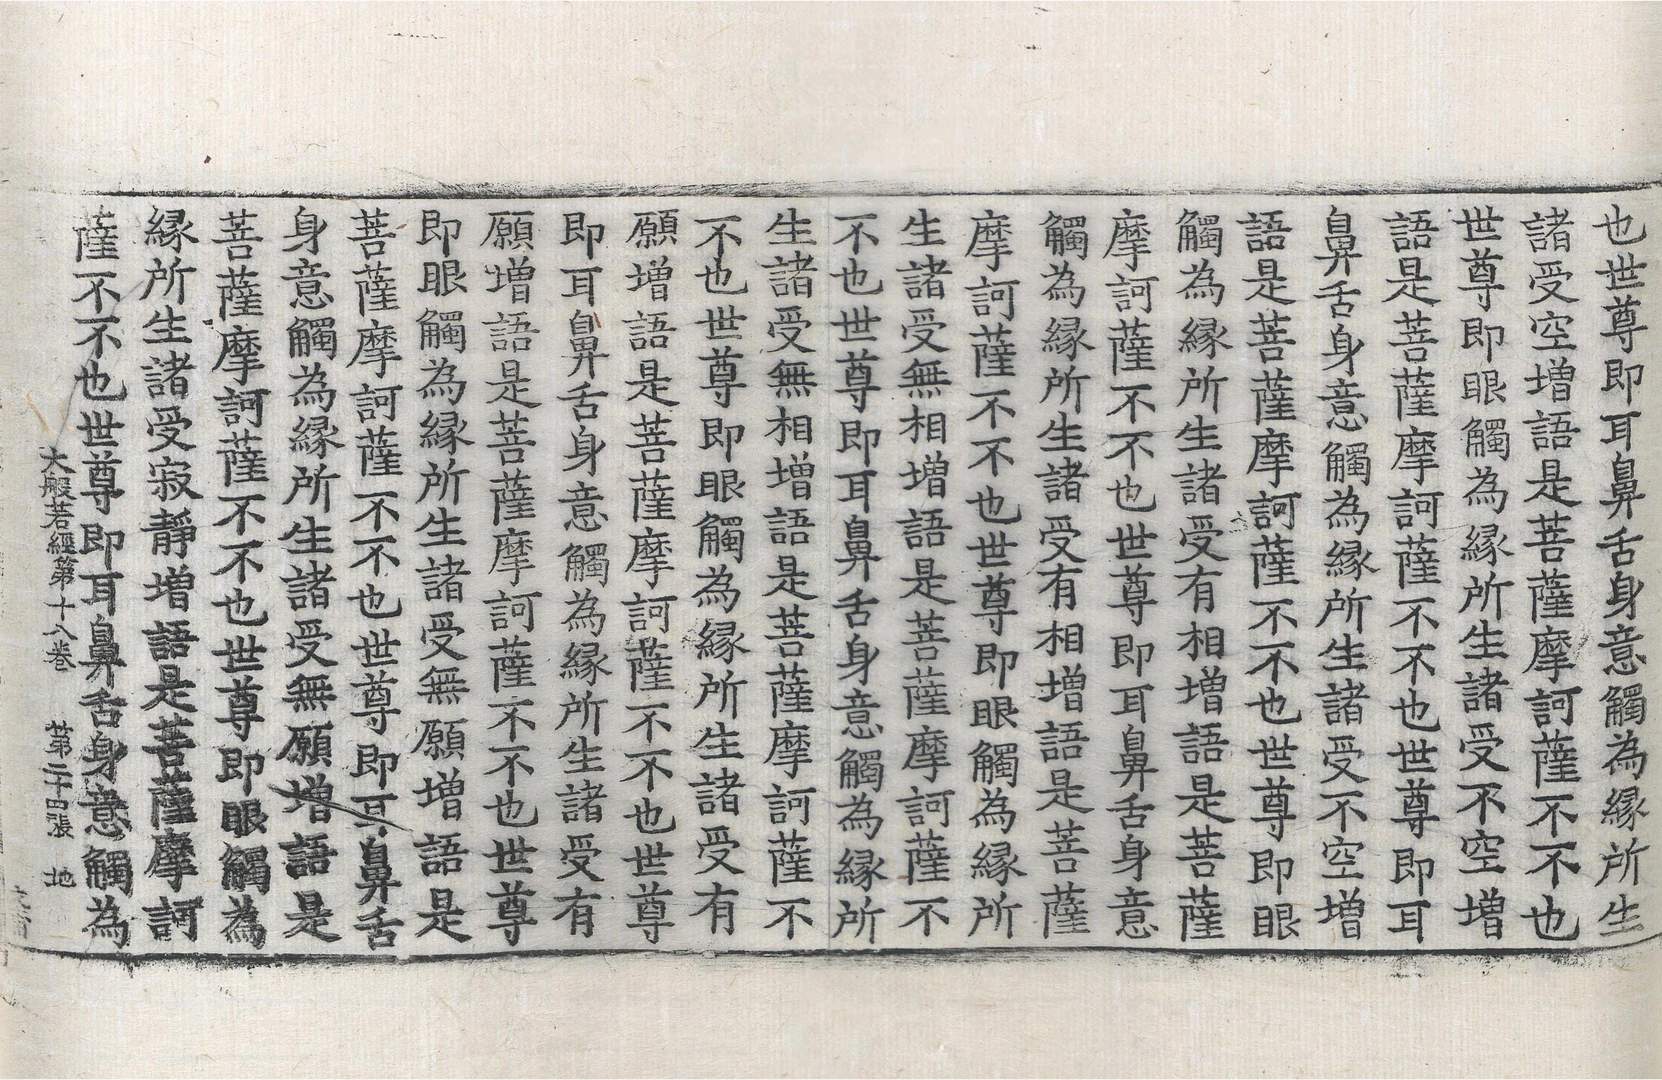 也世尊即耳鼻舌身意觸為縁所生
諸受空増語是菩薩摩訶薩不不也
世尊即眼觸為縁所生諸受不空増
語是菩薩摩訶薩不不也世尊即耳
鼻舌身意觸為縁所生諸受不空増
語是菩薩摩訶薩不不也世尊即眼
觸為縁所生諸受有相増語是菩薩
摩訶薩不不也世尊即耳鼻舌身意
觸為縁所生諸受有相増語是菩薩
摩訶薩不不也世尊即眼觸為縁所
生諸受無相増語是菩薩摩訶薩不
不也世尊即耳鼻舌身意觸為縁所
生諸受無相増語是菩薩摩訶薩不
不也世尊即眼觸為縁所生諸受有
願増語是菩薩摩訶薩不不也世尊
即耳鼻舌身意觸為縁所生諸受有
願増語是菩薩摩訶薩不不也世尊
即眼觸為縁所生諸受無願増語是
菩薩摩訶薩不不也世尊即耳鼻舌
身意觸為縁所生諸受無願増語是
菩薩摩訶薩不不也世尊即眼觸為
縁所生諸受寂靜増語是菩薩摩訶
薩不不也世尊即耳鼻舌身意觸為
大般若經第十八卷 第二十四張 地